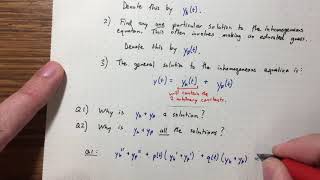 Denote this by y_h(t).
2) Find any one particular solution to the inhomogeneous
equation. This often involves making an educated guess.
Denote this by y_p(t).
3) The general solution to the inhomogeneous equation is:
y(t) = y_h(t) + y_p(t)
will contain the
2 arbitrary constants.
Q1) Why is y_h + y_p a solution?
Q2) Why is y_h + y_p all the solutions?
Q1: y_h'' + y_p'' + p(t)(y_h' + y_p') + q(t)(y_h + y_p)